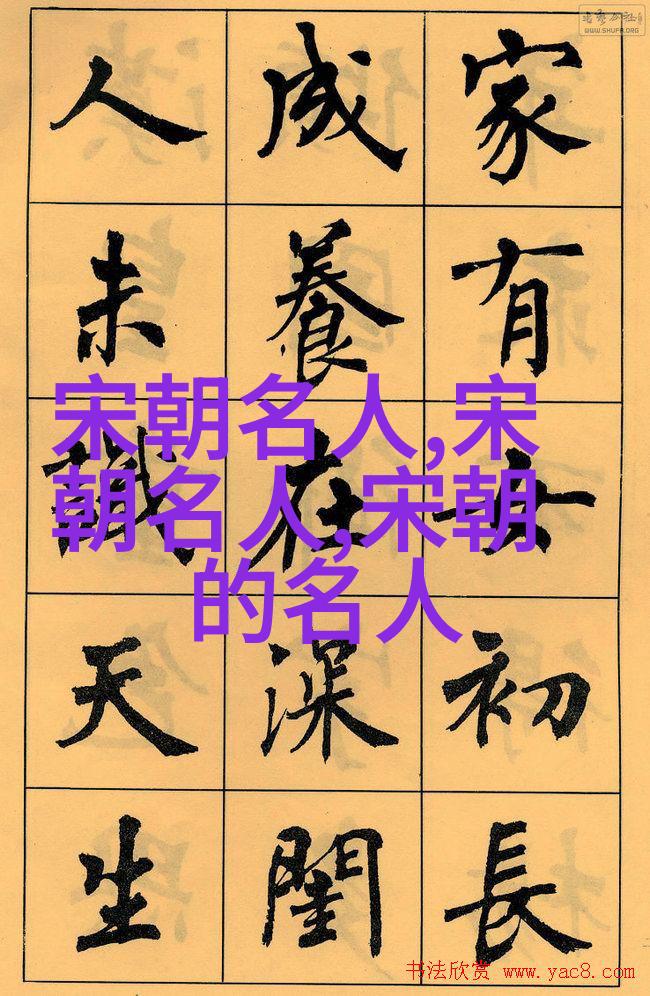 WWW.SHUFA.ORG
家有女初長
成養在深閨
人未識天生
宋朝名人,宋
朝名人,宋朝
的名人
书法欣赏 www.yac8.com